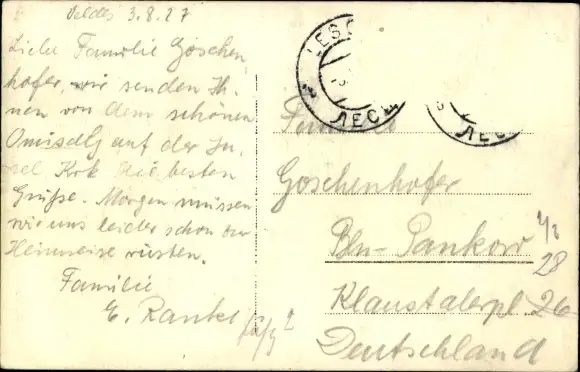 Veldes 3.8.27
Liebe Familie Goschen-
hofer, wir senden Ih-
nen von dem schönen
Omisalj auf der In-
sel Krk die besten
Grüße. Morgen müssen
wir uns leider schon zur
Heimreise rüsten.
Familie
E. Ranke
LESC
ЛЕСЦ
ЛЕС
Familie
Goschenhofer
Bln-Pankow
Klaustalerpl 26
Deutschland
28